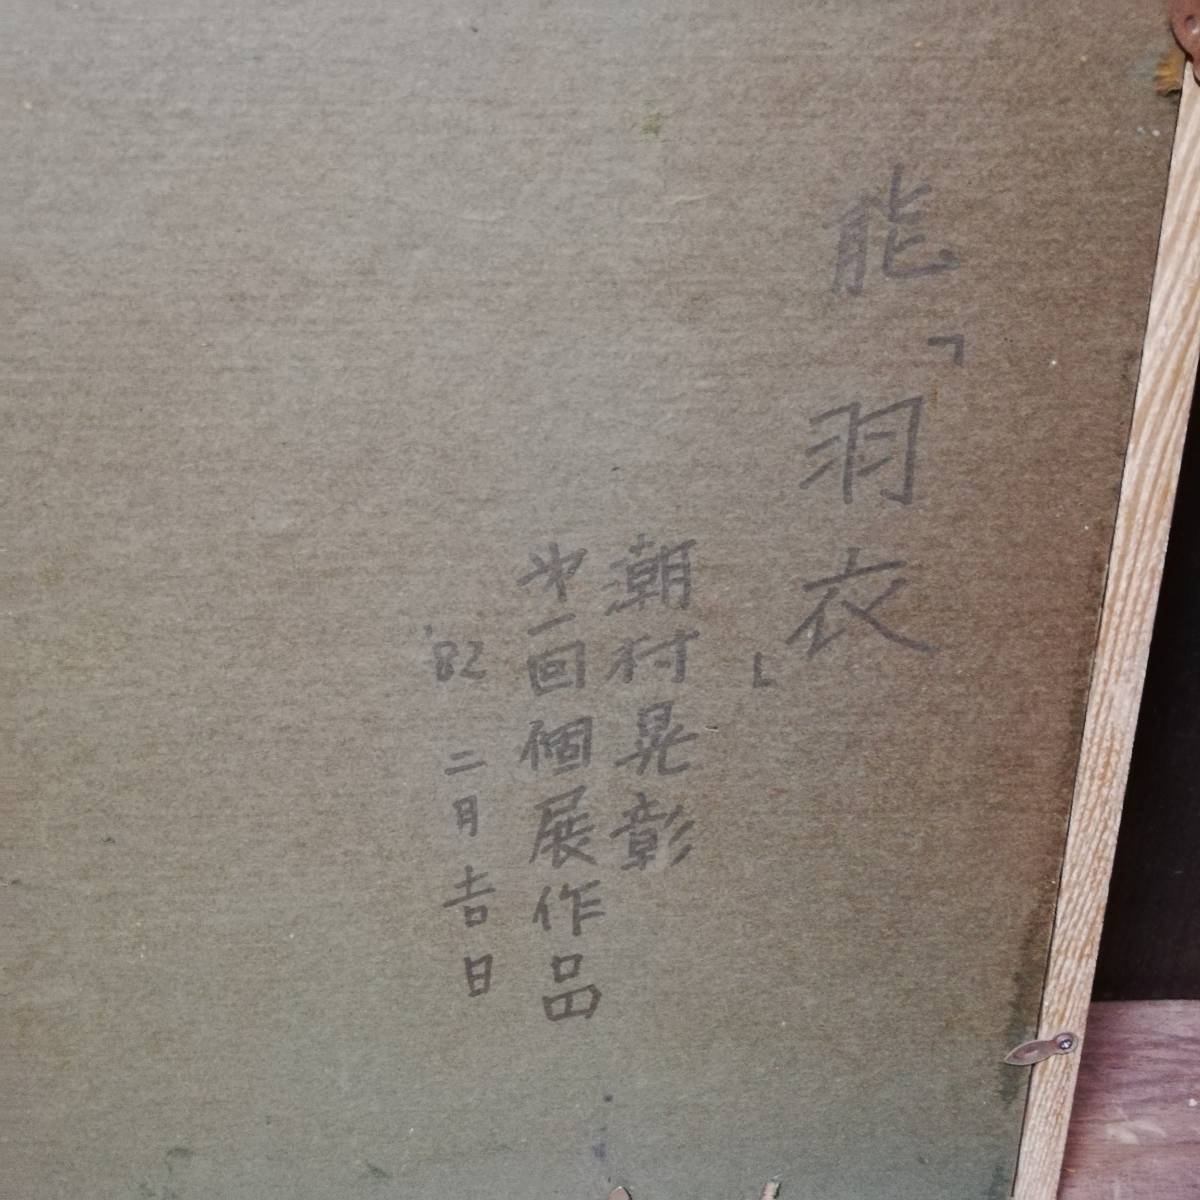 能「羽衣」
潮村晃彰
㐧一回個展作品
'82 二月吉日